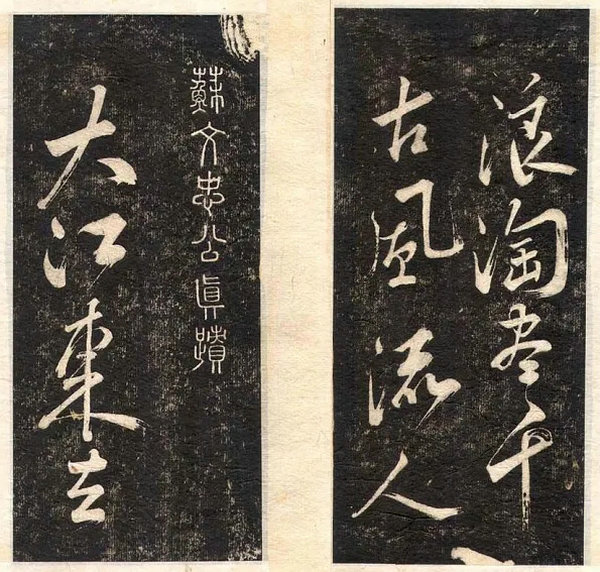 蘇文忠公眞蹟
大江東去
浪淘尽千
古風流人